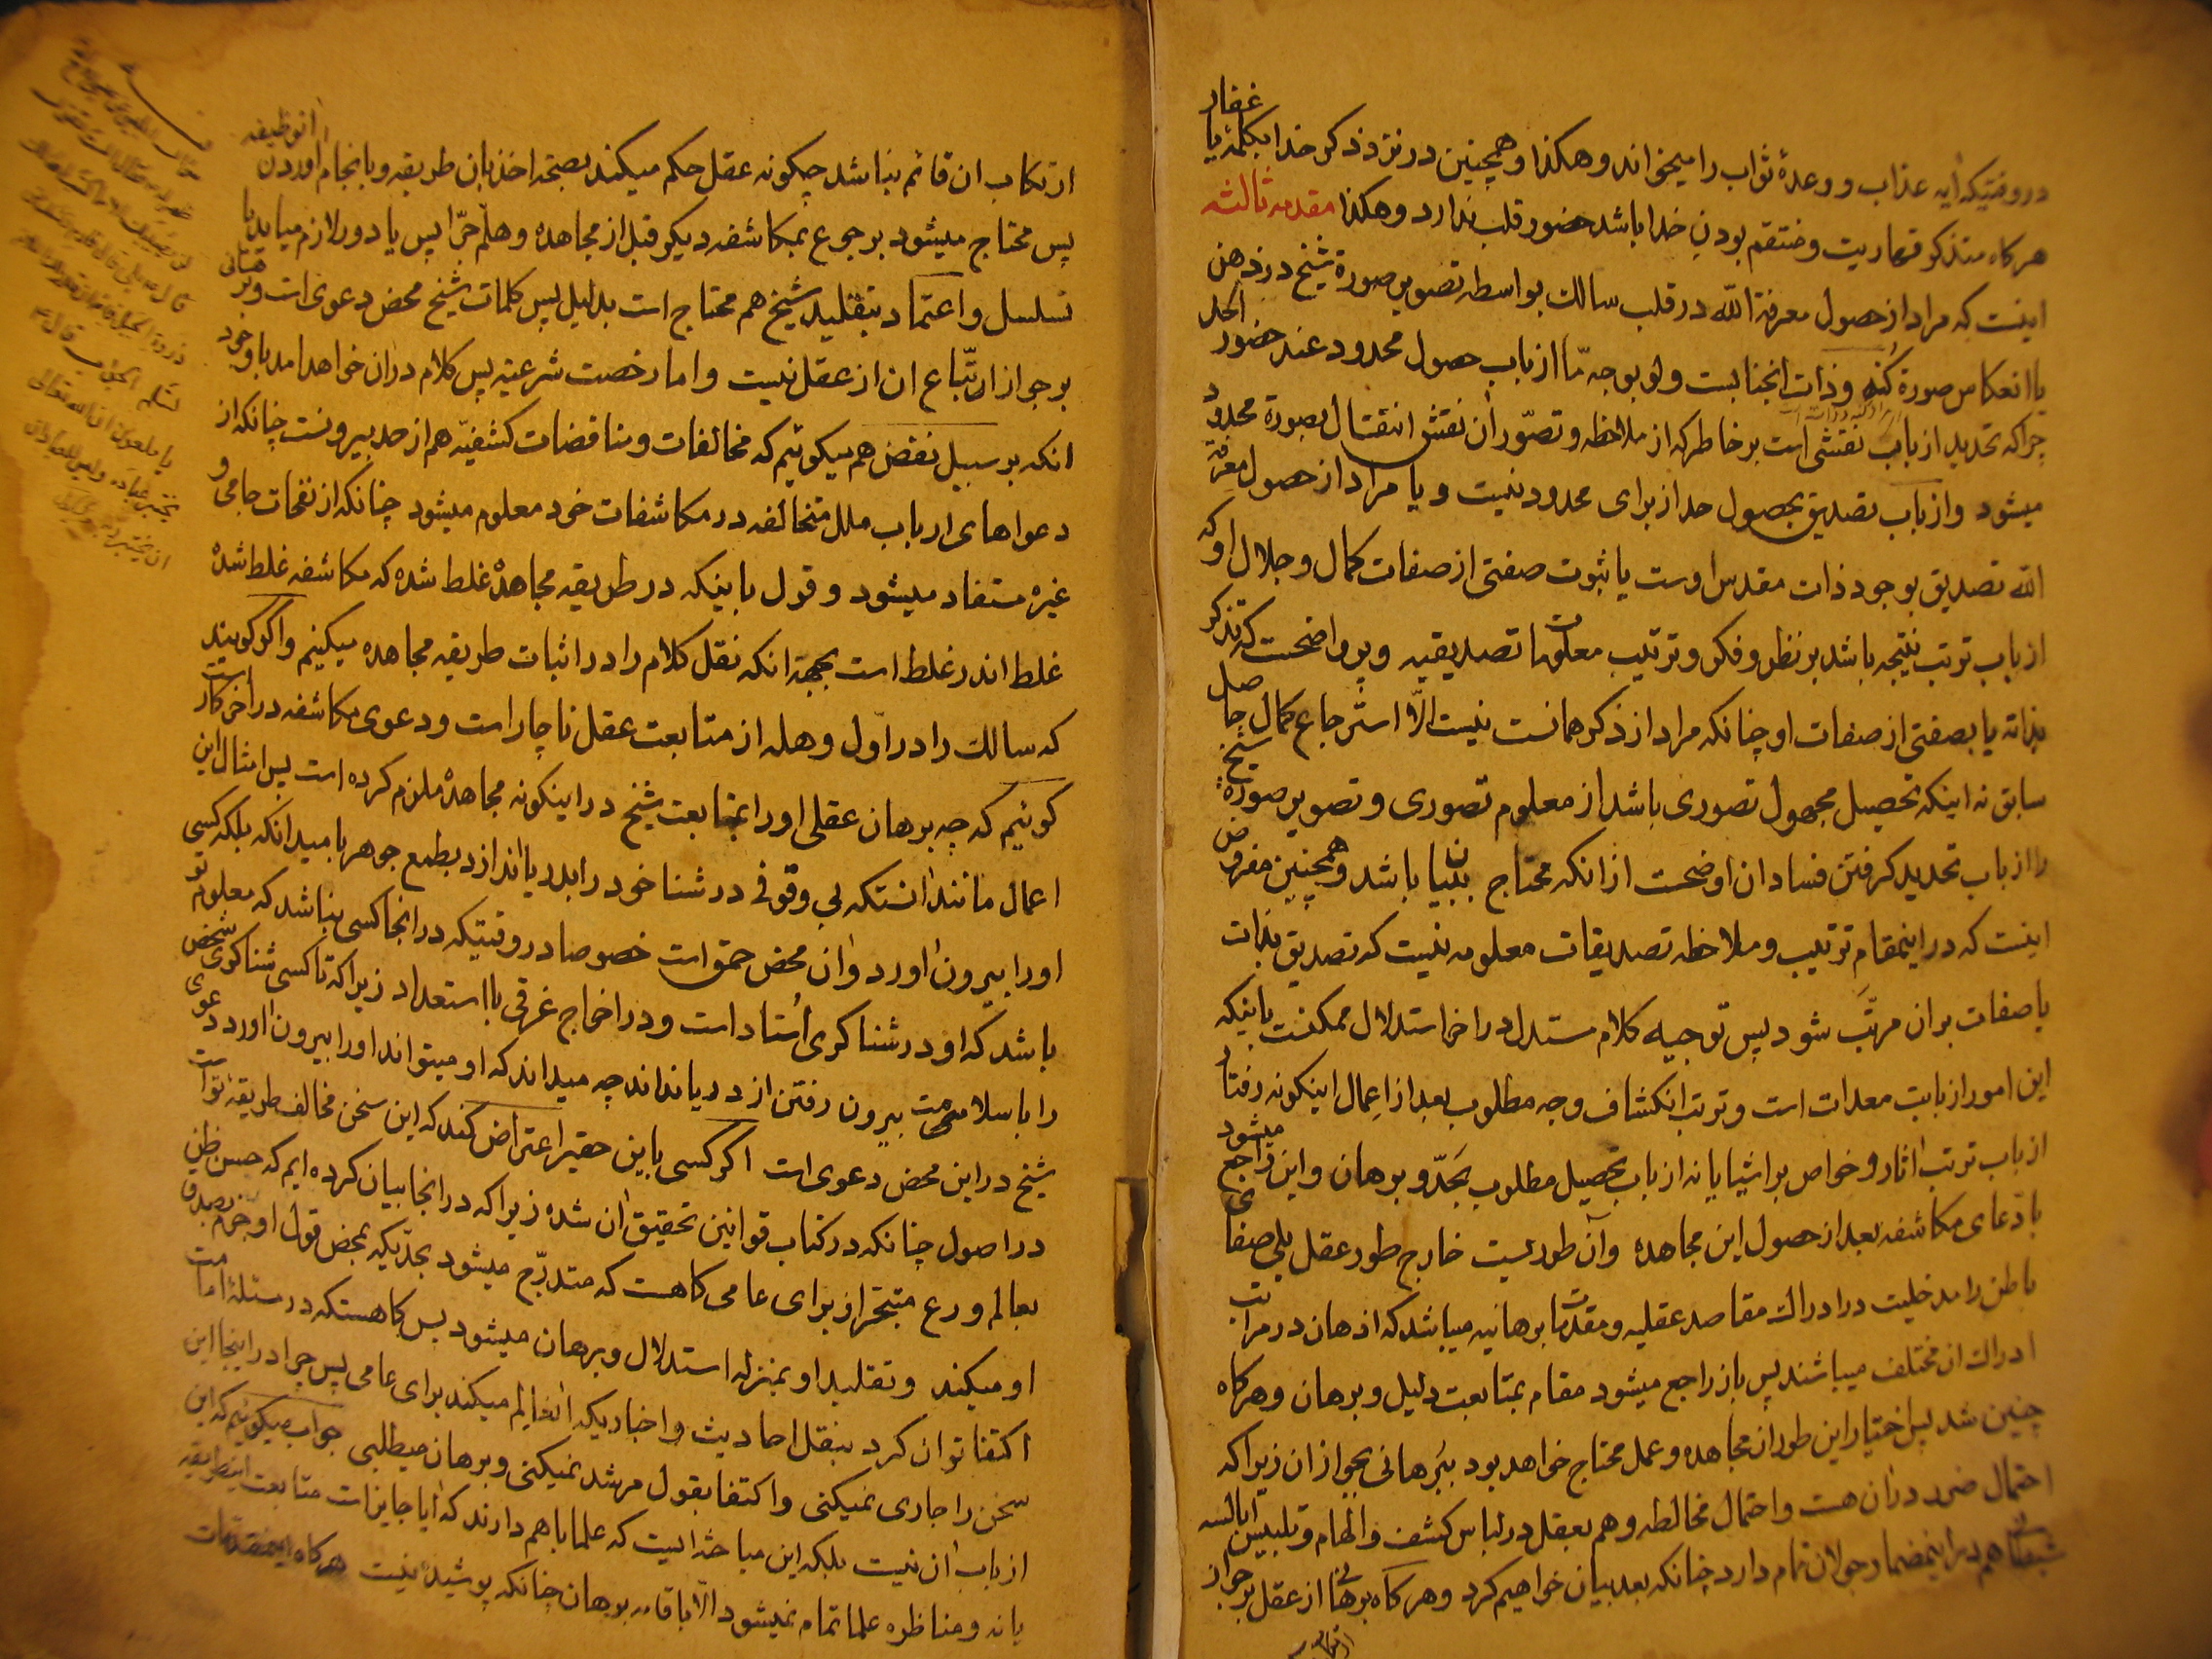 در وقتیکه ایه عذاب و وعدهٔ ثواب را میخواند و هکذا و همچنین در نزد ذکر خدا بکلمهٔ یا غفار
هرکاه متذکر قهاریت و منتقم بودن خدا باشد حضور قلب ندارد و هکذا مقدمه ثالثه
اینست که مراد از حصول معرفة الله در قلب سالک بواسطه تصویر صورة شیخ در ذهن
یا انعکاس صورة کنه و ذات انجنابست ولو بوجه ما از باب حصول محدود عند حضور الحد
چرا که تحدید از باب نقشی است بر خاطر که از ملاحظه و تصوّر ان نقش انتقال بصورة محدود
میشود و از باب تصدیق بحصول حد از برای محدود نیست و یا مراد از حصول معرفة
الله تصدیق بوجود ذات مقدس اوست یا ثبوت صفتی از صفات کمال و جلال او که
از باب ترتب نتیجه باشد بر نظر و فکر و ترتیب معلومات تصدیقیه و پر واضحست که تذکر
بذاته یا بصفتی از صفات او چنانکه مراد از ذکر همانست نیست الّا استرجاع کمال حاصل
سابق نه اینکه تحصیل مجهول تصوری باشد از معلوم تصوری و تصویر صورة شیخ
را از باب تحدید کرفتن فساد ان اوضحست از انکه محتاج ببیان باشد و همچنین مفروض
اینست که در اینمقام ترتیب و ملاحظه تصدیقات معلومه نیست که تصدیق بذات
یا صفات بر ان مرتّب شود پس توجیه کلام مستدل در اخر استدلال ممکنست باینکه
این امور از بابت معدات است و ترتب انکشاف وجه مطلوب بعد از اعمال اینکونه رفتار
از باب ترتب اثار و خواص بر اشیا یا نه از باب تحصیل مطلوب بحدّ و برهان و این راجع میشود
بادّعای مکاشفه بعد از حصول این مجاهده و آن طوریست خارج طور عقل بلی صفای
باطن را مدخلیت در ادراک مقاصد عقلیه و مقدمات برهانیه میباشد که اذهان در مراتب
ادراک ان مختلف میباشند پس باز راجع میشود مقام بمتابعت دلیل و برهان و هرکاه
چنین شد پس اختیار این طور ان مجاهده و عمل محتاج خواهد بود ببرهانی بجواز ان زیرا که
احتمال ضرر در ان هست و احتمال مخالطه وهم بعقل در لباس کشف و الهام و تلبیس ابالسه
هم در اینمضمار جولان تمام دارد چنانکه بعد بیان خواهیم کرد و هرکاه برهانی از عقل بر جواز
ارتکاب ان قائم نباشد چکونه عقل حکم میکند بصحة اخذ بان طریقه و بانجام اوردن انوظیفه
پس محتاج میشود برجوع بمکاشفه دیکر قبل از مجاهده و هلّم جرّا پس یا دور لازم میاید یا
تسلسل و اعتماد بتقلید شیخ هم محتاج است بدلیل پس کلمات شیخ محض دعوی است و
بر جواز اتّباع ان از عقل نیست و اما رخصت شرعیه پس کلام در ان خواهد امد با وجود
انکه بر سبیل نقض هم میکوئیم که مخالفات و مناقضات کشفیّه هم از حد بیرونست چنانکه از
دعواهای ارباب ملل متخالفه در مکاشفات خود معلوم میشود چنانکه از نفحات جامی و
غیره مستفاد میشود و قول باینکه در طریقه مجاهده غلط شده که مکاشفه غلط شده
غلط اندر غلط است بجهة انکه نقل کلام را در اثبات طریقه مجاهده میکنیم و اکر کویند
که سالک را در اوّل وهله از متابعت عقل ناچار است و دعوی مکاشفه در اخر کار است
کوئیم که چه برهان عقلی او را بمتابعت شیخ در اینکونه مجاهده ملزم کرده است پس امثال این
اعمال مانند انستکه بی وقوفی در شنا خود را بدریا اندازد بطمع جوهر بامید انکه بلکه کسی
او را بیرون اورد و ان محض حمق است خصوصا در وقتیکه در انجا کسی نباشد که معلوم تو
باشد که او در شناکری استاد است و در اخراج غرقی با استعداد زیرا که تا کسی شناکری شخص
را با سلامت بیرون رفتن از دریا نداند چه میداند که او میتواند او را بیرون اورد دعوی
شیخ در این محض دعوی است اکر کسی باین حقیر اعتراض کند که این سخن مخالف طریقه تو است
در اصول چنانکه در کتاب قوانین تحقیق ان شده زیرا که در انجا بیان کرده ایم که حسن ظن
بعالم ورع متبحر از برای عامی کاهست که متدرّج میشود بحدّیکه بمحض قول او جزم بصدق
او میکند و تقلید او بمنزله استدلال و برهان میشود پس کاهستکه در مسئلهٔ امامت
اکتفا توان کرد بنقل احادیث و اخباریکه انعالم میکند برای عامی پس چرا در اینجا این
سخن را جاری نمیکنی و اکتفا بقول مرشد نمیکنی و برهان میطلبی جواب میکوئیم که این
از باب ان نیست بلکه این مباحثه ایست که علما با هم دارند که ایا جایز است متابعت اینطریقه
یا نه و مناظره علما تمام نمیشود الّا باقامه برهان چنانکه پوشیده نیست هرکاه اینمقدمات